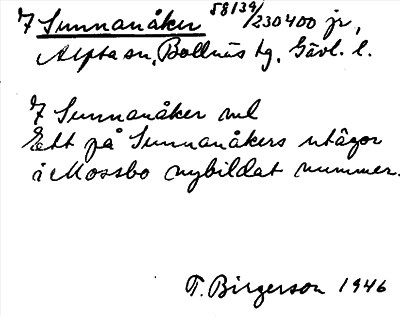 7 Sunnanåker 58139/230400 jr,
Alfta sn, Bollnäs tg, Gävl. l.
7 Sunnanåker nel
Ett på Sunnanåkers utägor
i Mossbo nybildat nummer.
T. Birgerson 1946